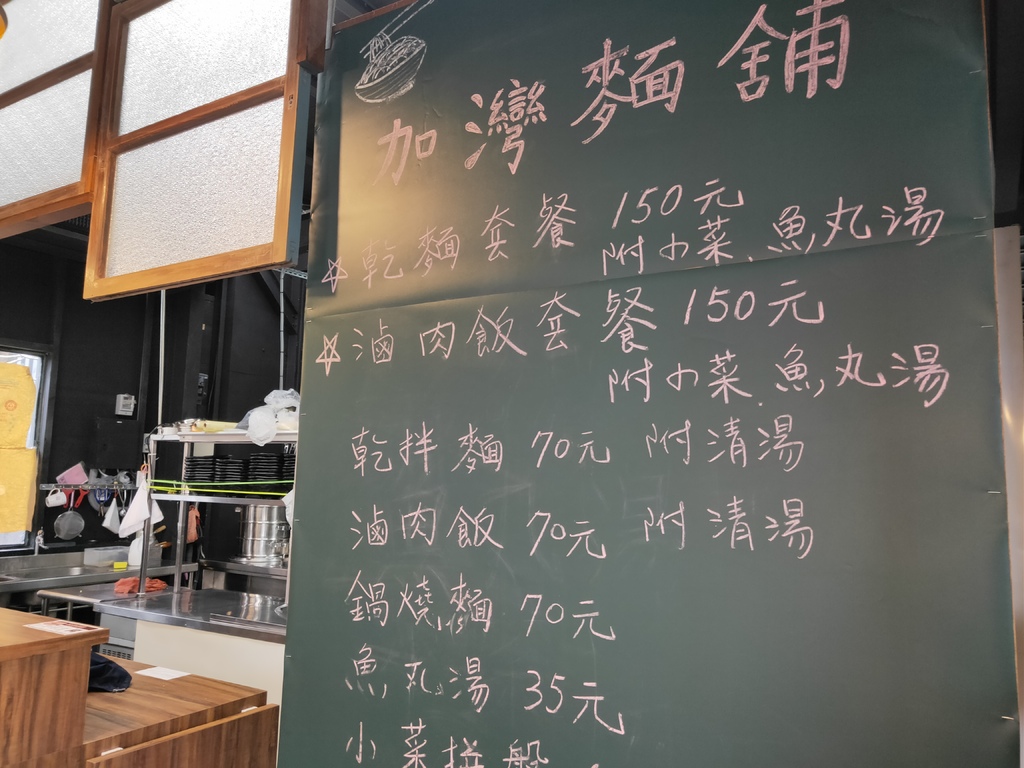 加灣麵舖
☆乾麵套餐 150元
附小菜.魚丸湯
☆滷肉飯套餐 150元
附小菜.魚丸湯
乾拌麵 70元 附清湯
滷肉飯 70元 附清湯
鍋燒麵 70元
魚丸湯 35元
小菜拼盤